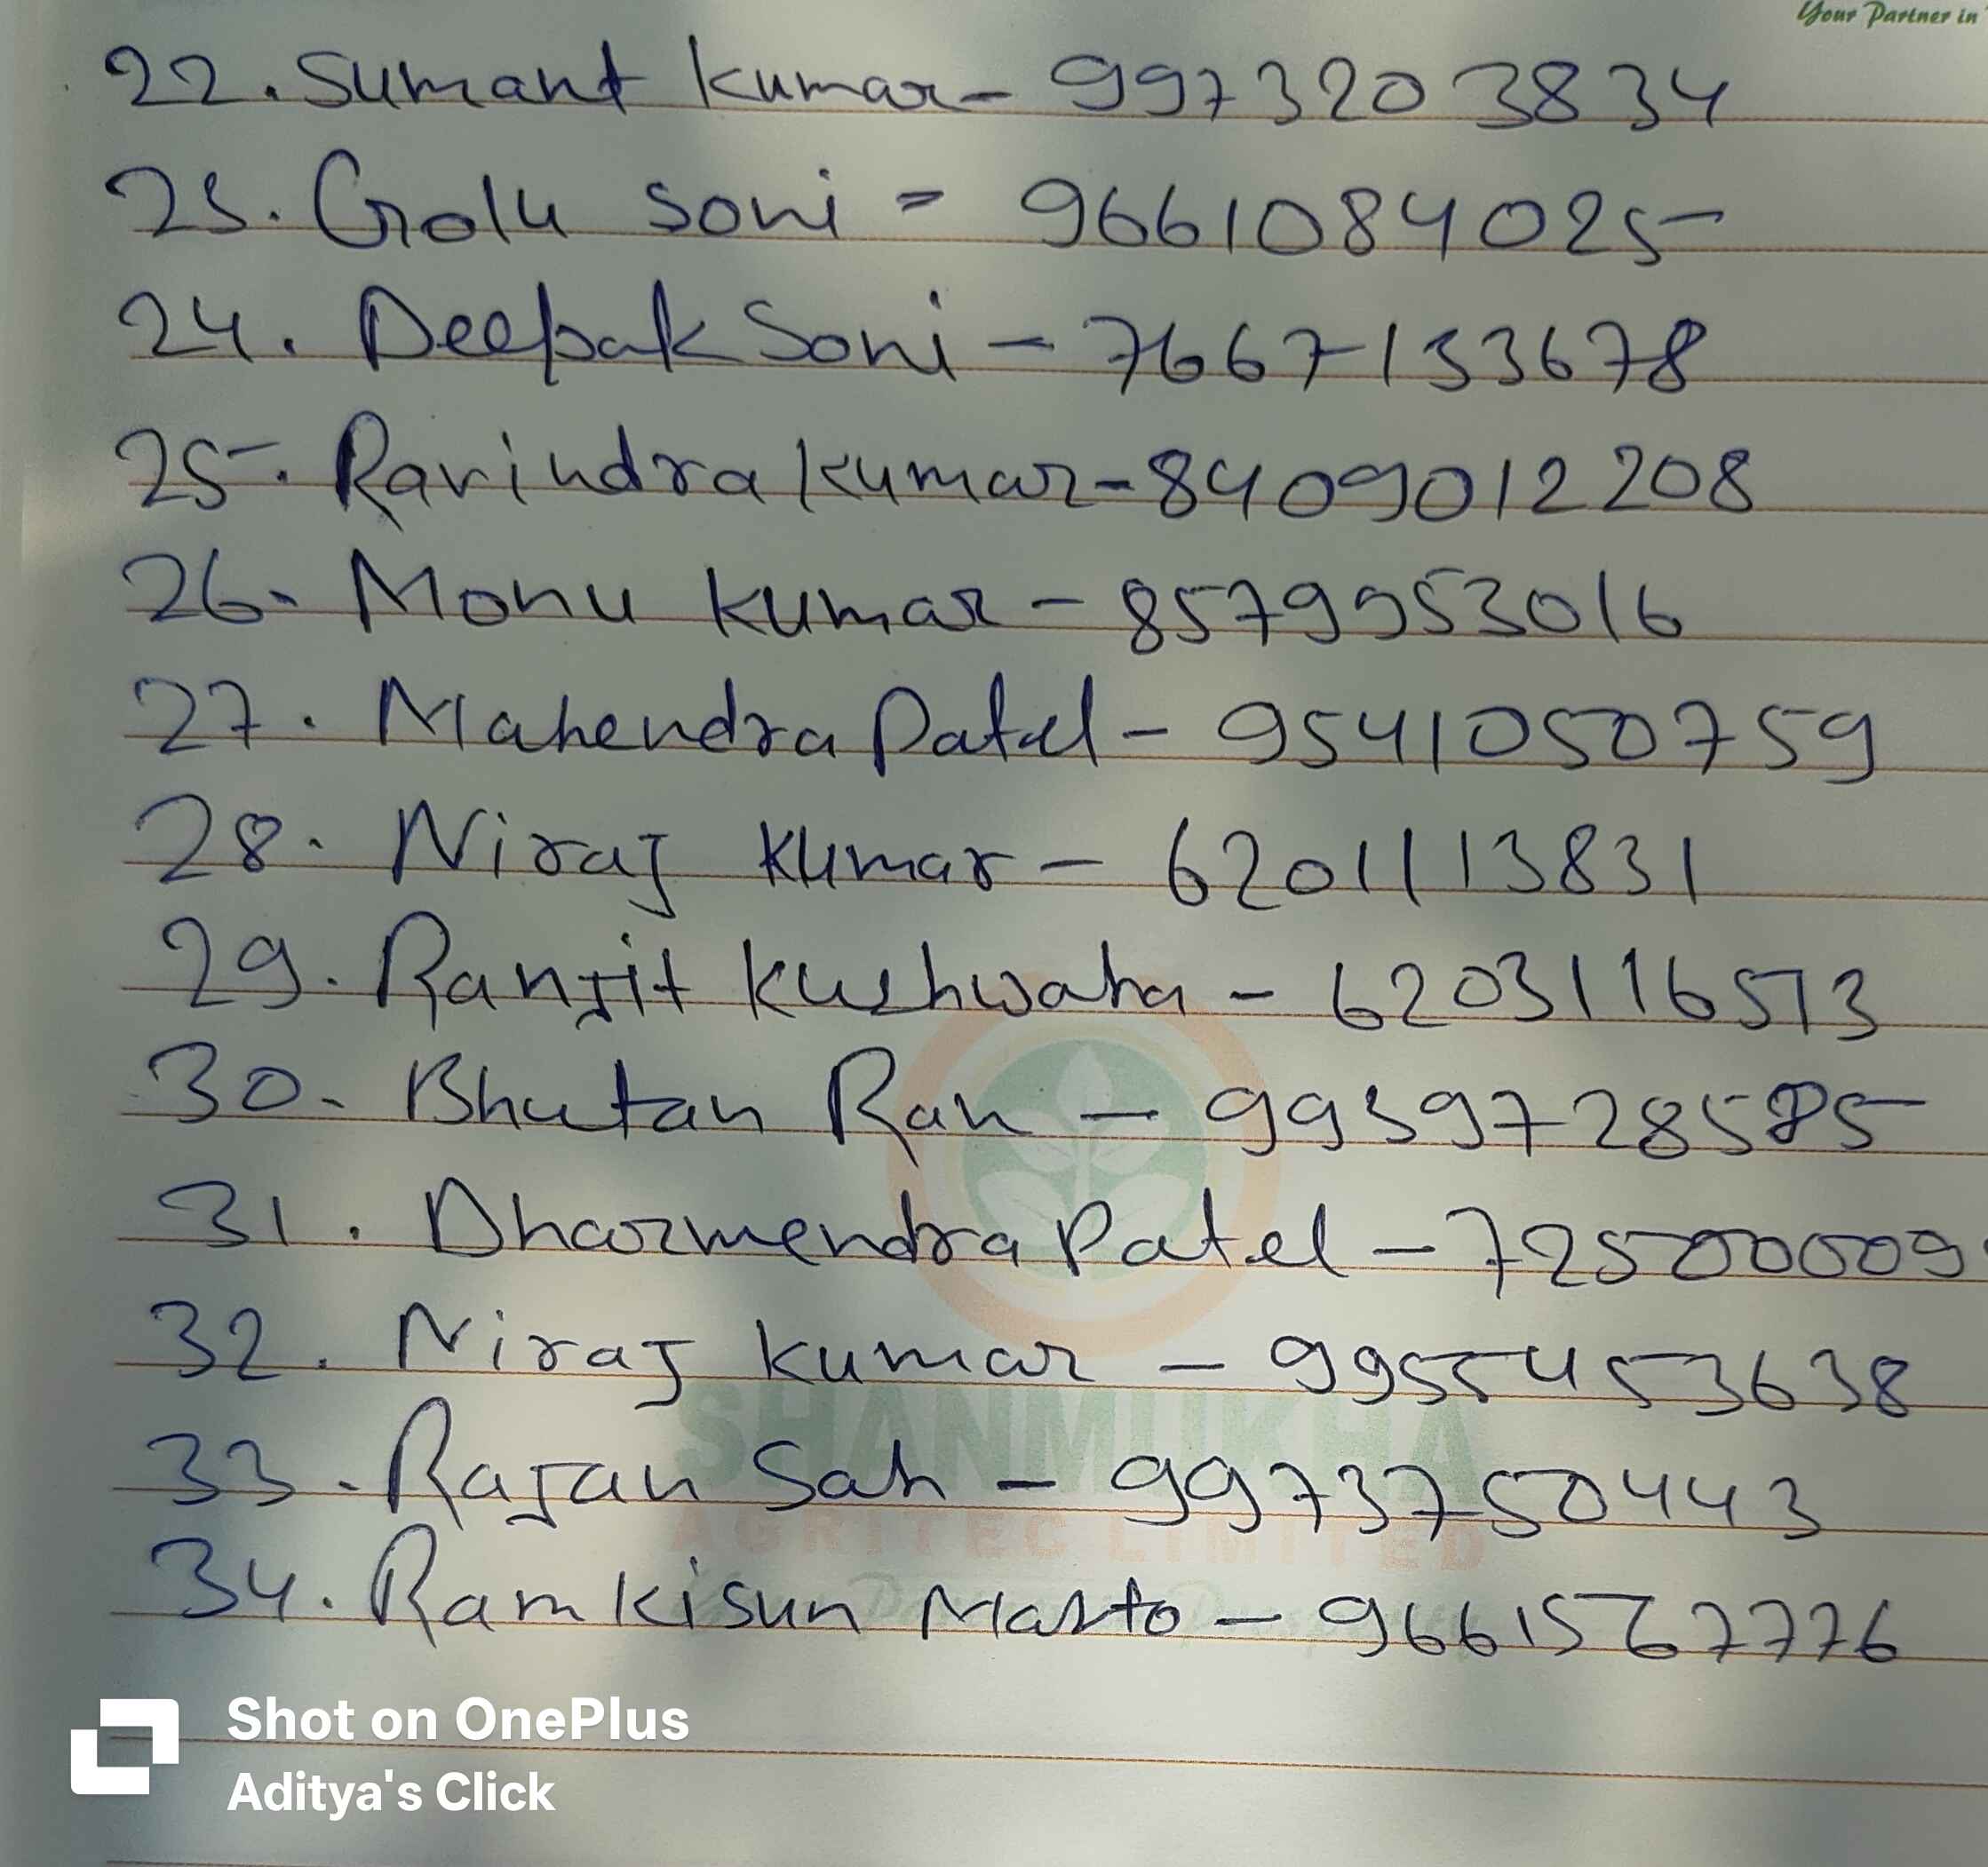 Your Partner in
22. Sumant kumar - 9973203834
23. Golu Soni - 9661084025
24. Deepak Soni - 7667133678
25. Ravindra kumar - 8409012208
26. Monu kumar - 8579953016
27. Mahendra Patel - 9541050759
28. Niraj kumar - 6201113831
29. Ranjit kushwaha - 6203116573
30. Bhutan Ran - 9939728585
31. Dharmendra Patel - 72500009
32. Niraj kumar - 9955453638
33. Rajan Sah - 9973750443
34. Ramkisun Mahto - 9661567776
SHANMUKHA
AGRITEC LIMITED
Shot on OnePlus
Aditya's Click